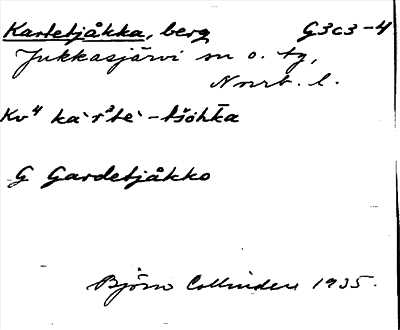 Kartetjåkka, berg G3c3-4
Jukkasjärvi sn o. tg,
Nrrb. l.
Kv⁴ ka`r³te`-tšåhka
G Gardetjåkko
Björn Collinder 1935.